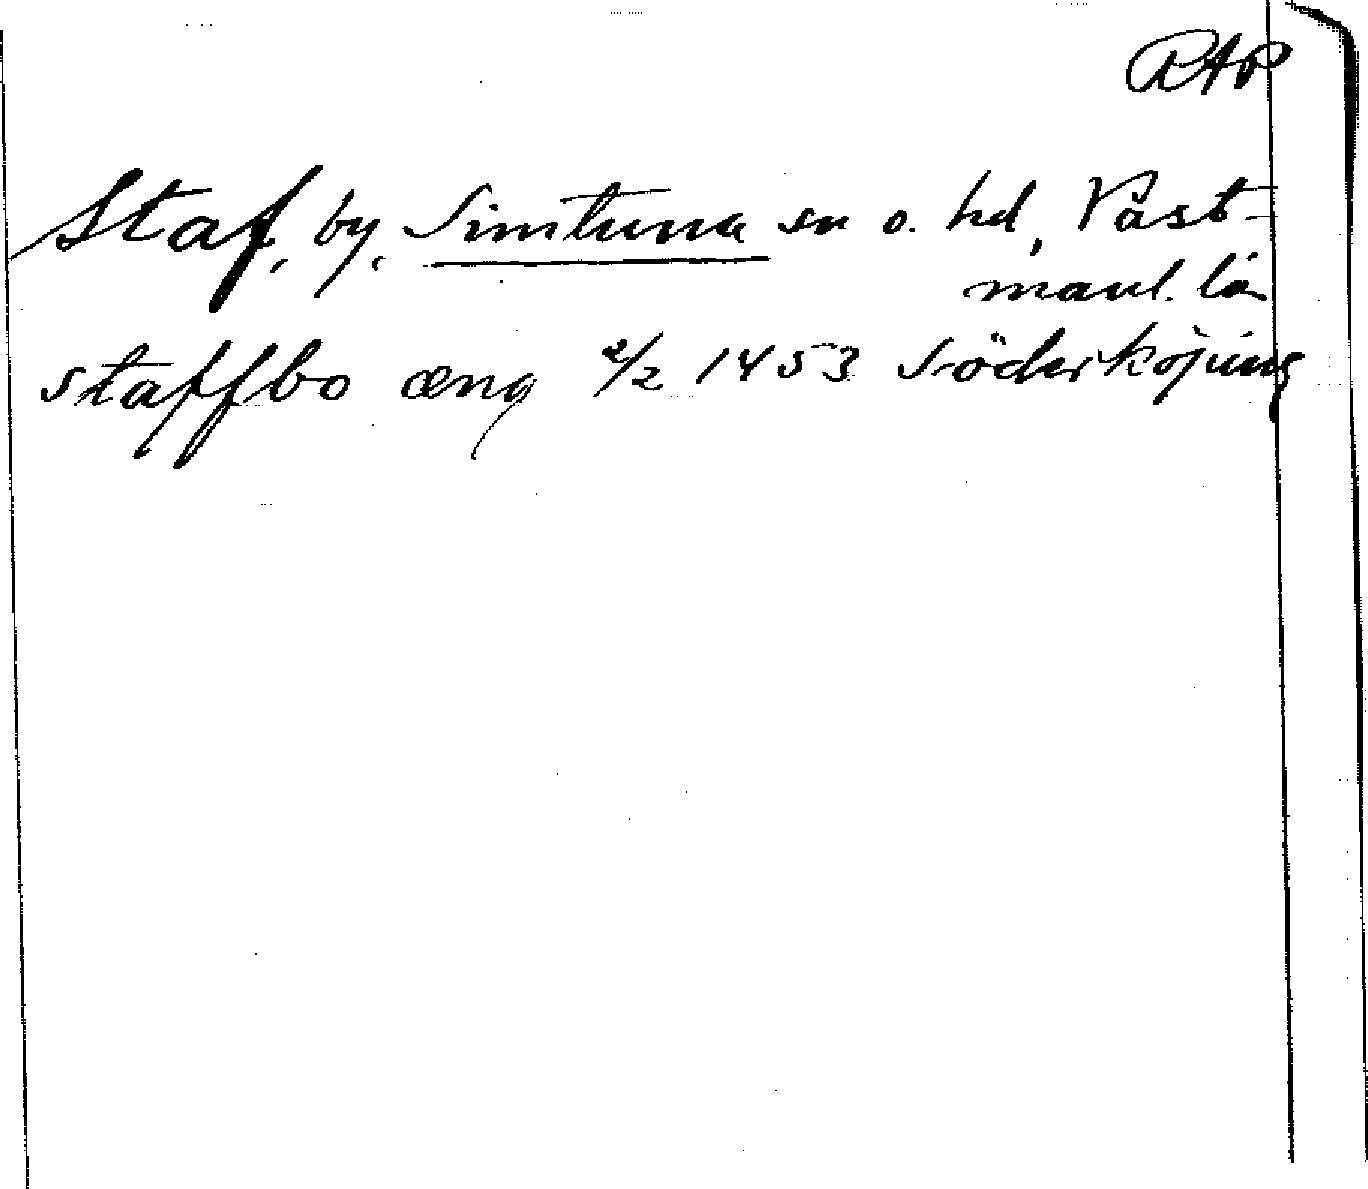 RAP
Staf, by, Simtuna sn o. hd, Väst-
manl. län
staffbo æng 2/2 1453 Söderköping